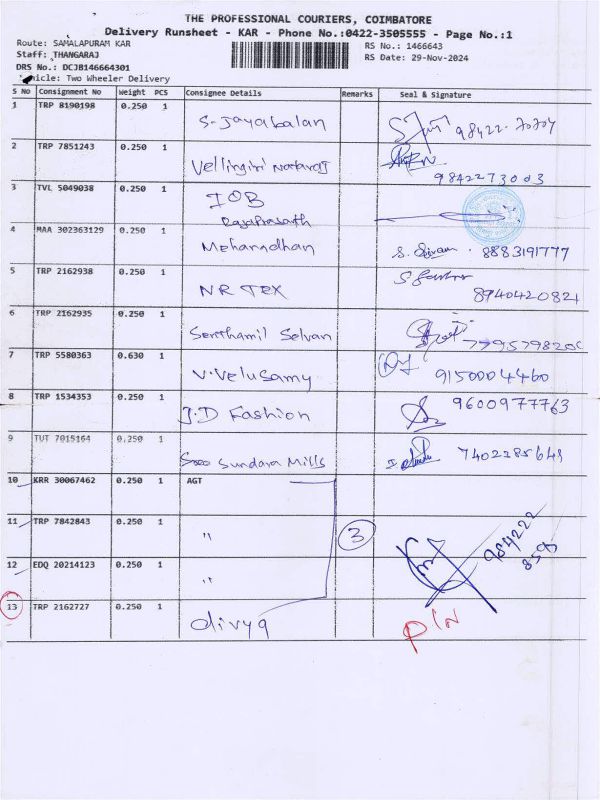 THE PROFESSIONAL COURIERS, COIMBATORE
Delivery Runsheet - KAR - Phone No.:0422-3505555 - Page No.:1
Route: SAMALAPURAM KAR
RS No.: 1466643
Staff: THANGARAJ
RS Date: 29-Nov-2024
DRS No.: DCJB146664301
Vehicle: Two Wheeler Delivery
S No Consignment No Weight PCS Consignee Details Remarks Seal & Signature
1 TRP 8190198 0.250 1 S-Jayabalan
2 TRP 7851243 0.250 1 Vellingiri Nataraj 9842273003
3 TVL 5049038 0.250 1 IOB
Rajaprasath
4 MAA 302363129 0.250 1 Mehanadhan S. Sivam 8883191777
5 TRP 2162938 0.250 1 NR TEX 8940420821
6 TRP 2162935 0.250 1 Senthamil Selvan
7 TRP 5580363 0.630 1 V.Velusamy 9150004460
8 TRP 1534353 0.250 1 J.D Fashion 9600977763
9 TUT 7015164 0.250 1 Sundara Mills 7402285649
10 KRR 30067462 0.250 1 AGT
11 TRP 7842843 0.250 1 " 3 984222
12 EDQ 20214123 0.250 1 "
13 TRP 2162727 0.250 1 divya PIN